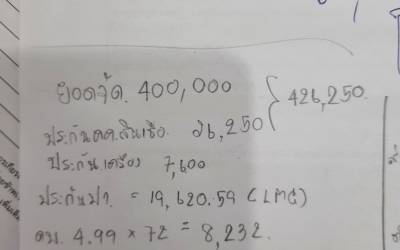 ยอดจัด. 400,000 } 426,250.
ประกันคค.สินเชื่อ. 26,250
ประกันเครื่อง 7,600
ประกันปา. = 19,620.59 (LMG)
ดบ. 4.99 × 72 = 8,232.